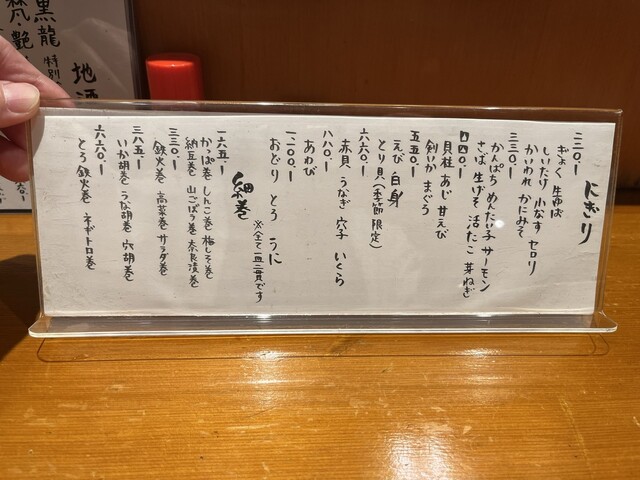 にぎり
二二〇.ー
ぎょく 生ゆば
しいたけ 小なす セロリ
かいわれ かにみそ
三三〇.ー
かんぱち めんたい子 サーモン
さば 生げそ 活たこ 芽ねぎ
四四〇.ー
貝柱 あじ 甘えび
剣いか まぐろ
五五〇.ー
えび 白身
とり貝(季節限定)
六六〇.ー
赤貝 うなぎ 穴子 いくら
八八〇.ー
あわび
一一〇〇.ー
おどり とろ うに
※全て一皿二貫です
細巻
一六五.ー
かっぱ巻 しんこ巻 梅しそ巻
納豆巻 山ごぼう巻 奈良漬巻
三三〇.ー
鉄火巻 高菜巻 サラダ巻
三八五.ー
いか胡巻 うな胡巻 穴胡巻
六六〇.ー
とろ鉄火巻 ネギトロ巻
地酒
黒龍 特別
梵・艶